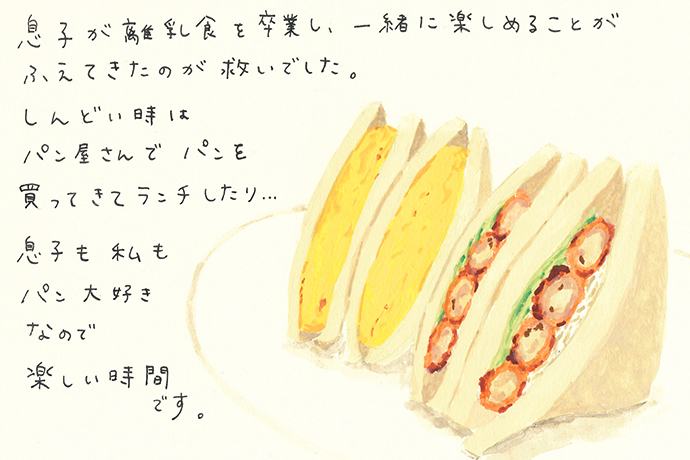 息子が離乳食を卒業し、一緒に楽しめることが
ふえてきたのが救いでした。
しんどい時は
パン屋さんで パンを
買ってきてランチしたり…
息子も 私も
パン大好き
なので
楽しい時間
です。